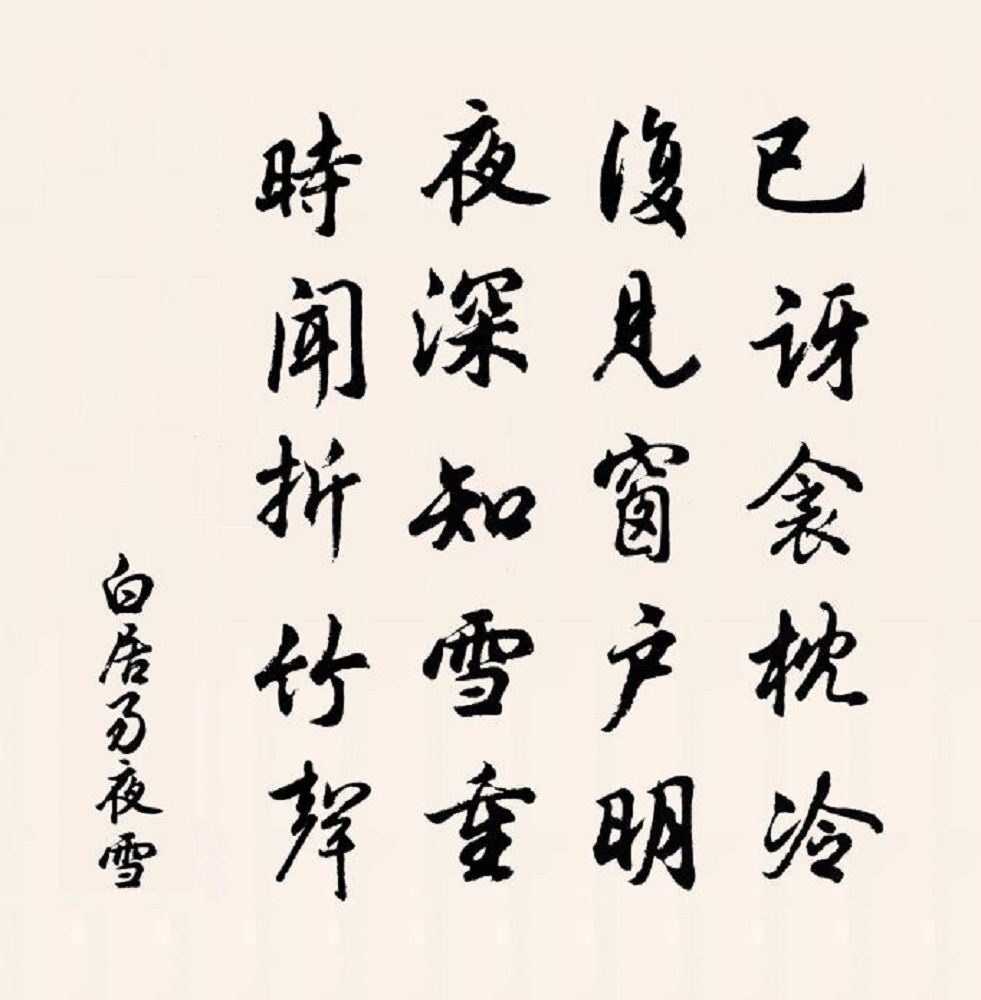 已訝衾枕冷
復見窗戶明
夜深知雪重
時聞折竹聲
白居易夜雪